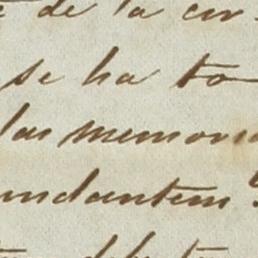 de la cir-
se ha to
las memoria
undantem